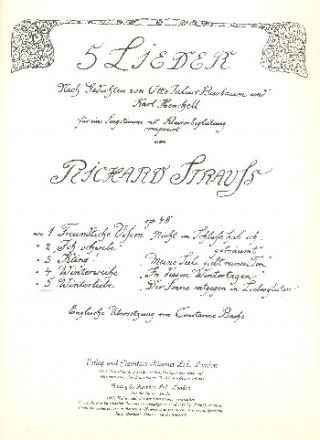 5 LIEDER
Nach Gedichten von Otto Julius Bierbaum und
Karl Henckell
für eine Singstimme mit Klavierbegleitung
componiert
von
RICHARD STRAUSS
op 48
No 1 Freundliche Vision „Nicht im Schlafe hab ich
geträumt"
" 2 Ich schwebe
" 3 Kling! „Meine Seele giebt reinen Ton"
" 4 Winterweihe „In diesen Wintertagen"
" 5 Winterliebe „Der Sonne entgegen in Liebesgluten"
Englische Übersetzung von Constance Bache
Verlag und Eigentum Ltd. London
Boosey & Hawkes Ltd. London